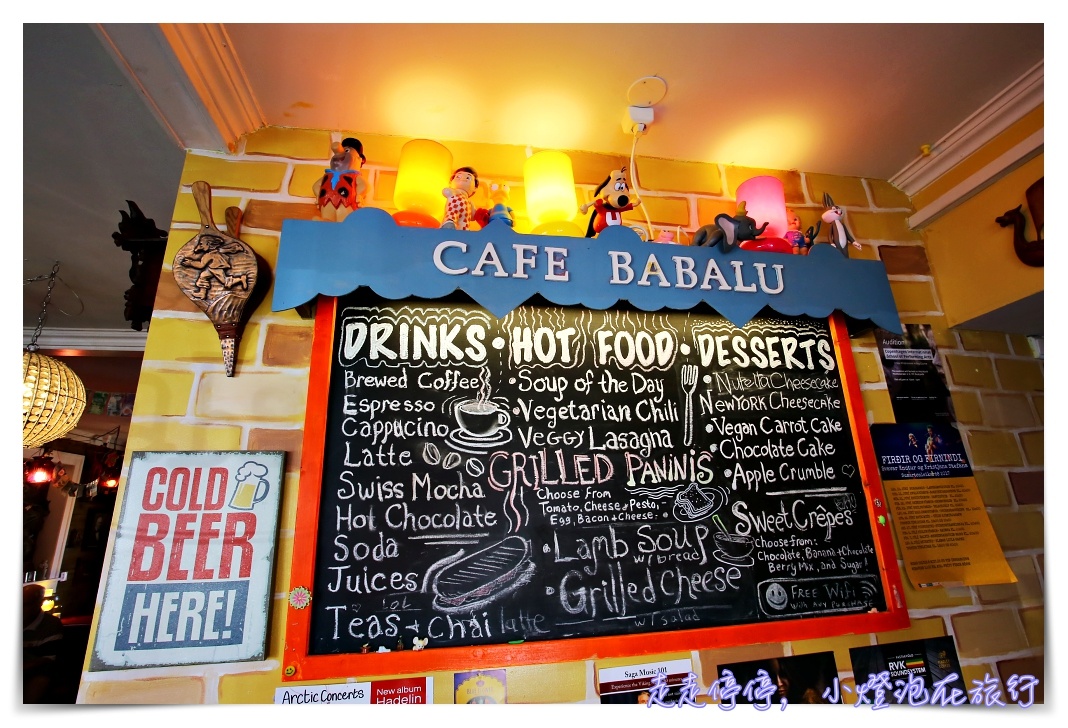 CAFE BABALU
DRINKS • HOT FOOD • DESSERTS
Brewed Coffee
Espresso
Cappucino
Latte
Swiss Mocha
Hot Chocolate
Soda
Juices
Teas + Chai latte
• Soup of the Day
• Vegetarian Chili
Veggy Lasagna
GRILLED PANINIS
Choose From
Tomato, Cheese & Pesto,
Egg, Bacon & Cheese.
• Lamb Soup
w/bread
• Grilled Cheese
w/salad
• Nutella Cheesecake
NEWYORK CHEESECAKE
• Vegan Carrot Cake
• Chocolate Cake
• Apple Crumble
Sweet Crêpes
choose from:
Chocolate, Banana & Chocolate
Berry Mix, and Sugar!
FREE WiFi
With any PURCHASE
COLD
BEER
HERE!
Auditions
FIRÐIR OG FIRNINDI
Arctic Concerts
New album
Hadelin
Saga Music 101
RVK
SOUNDSYSTEM
走走停停, 小燈泡在旅行